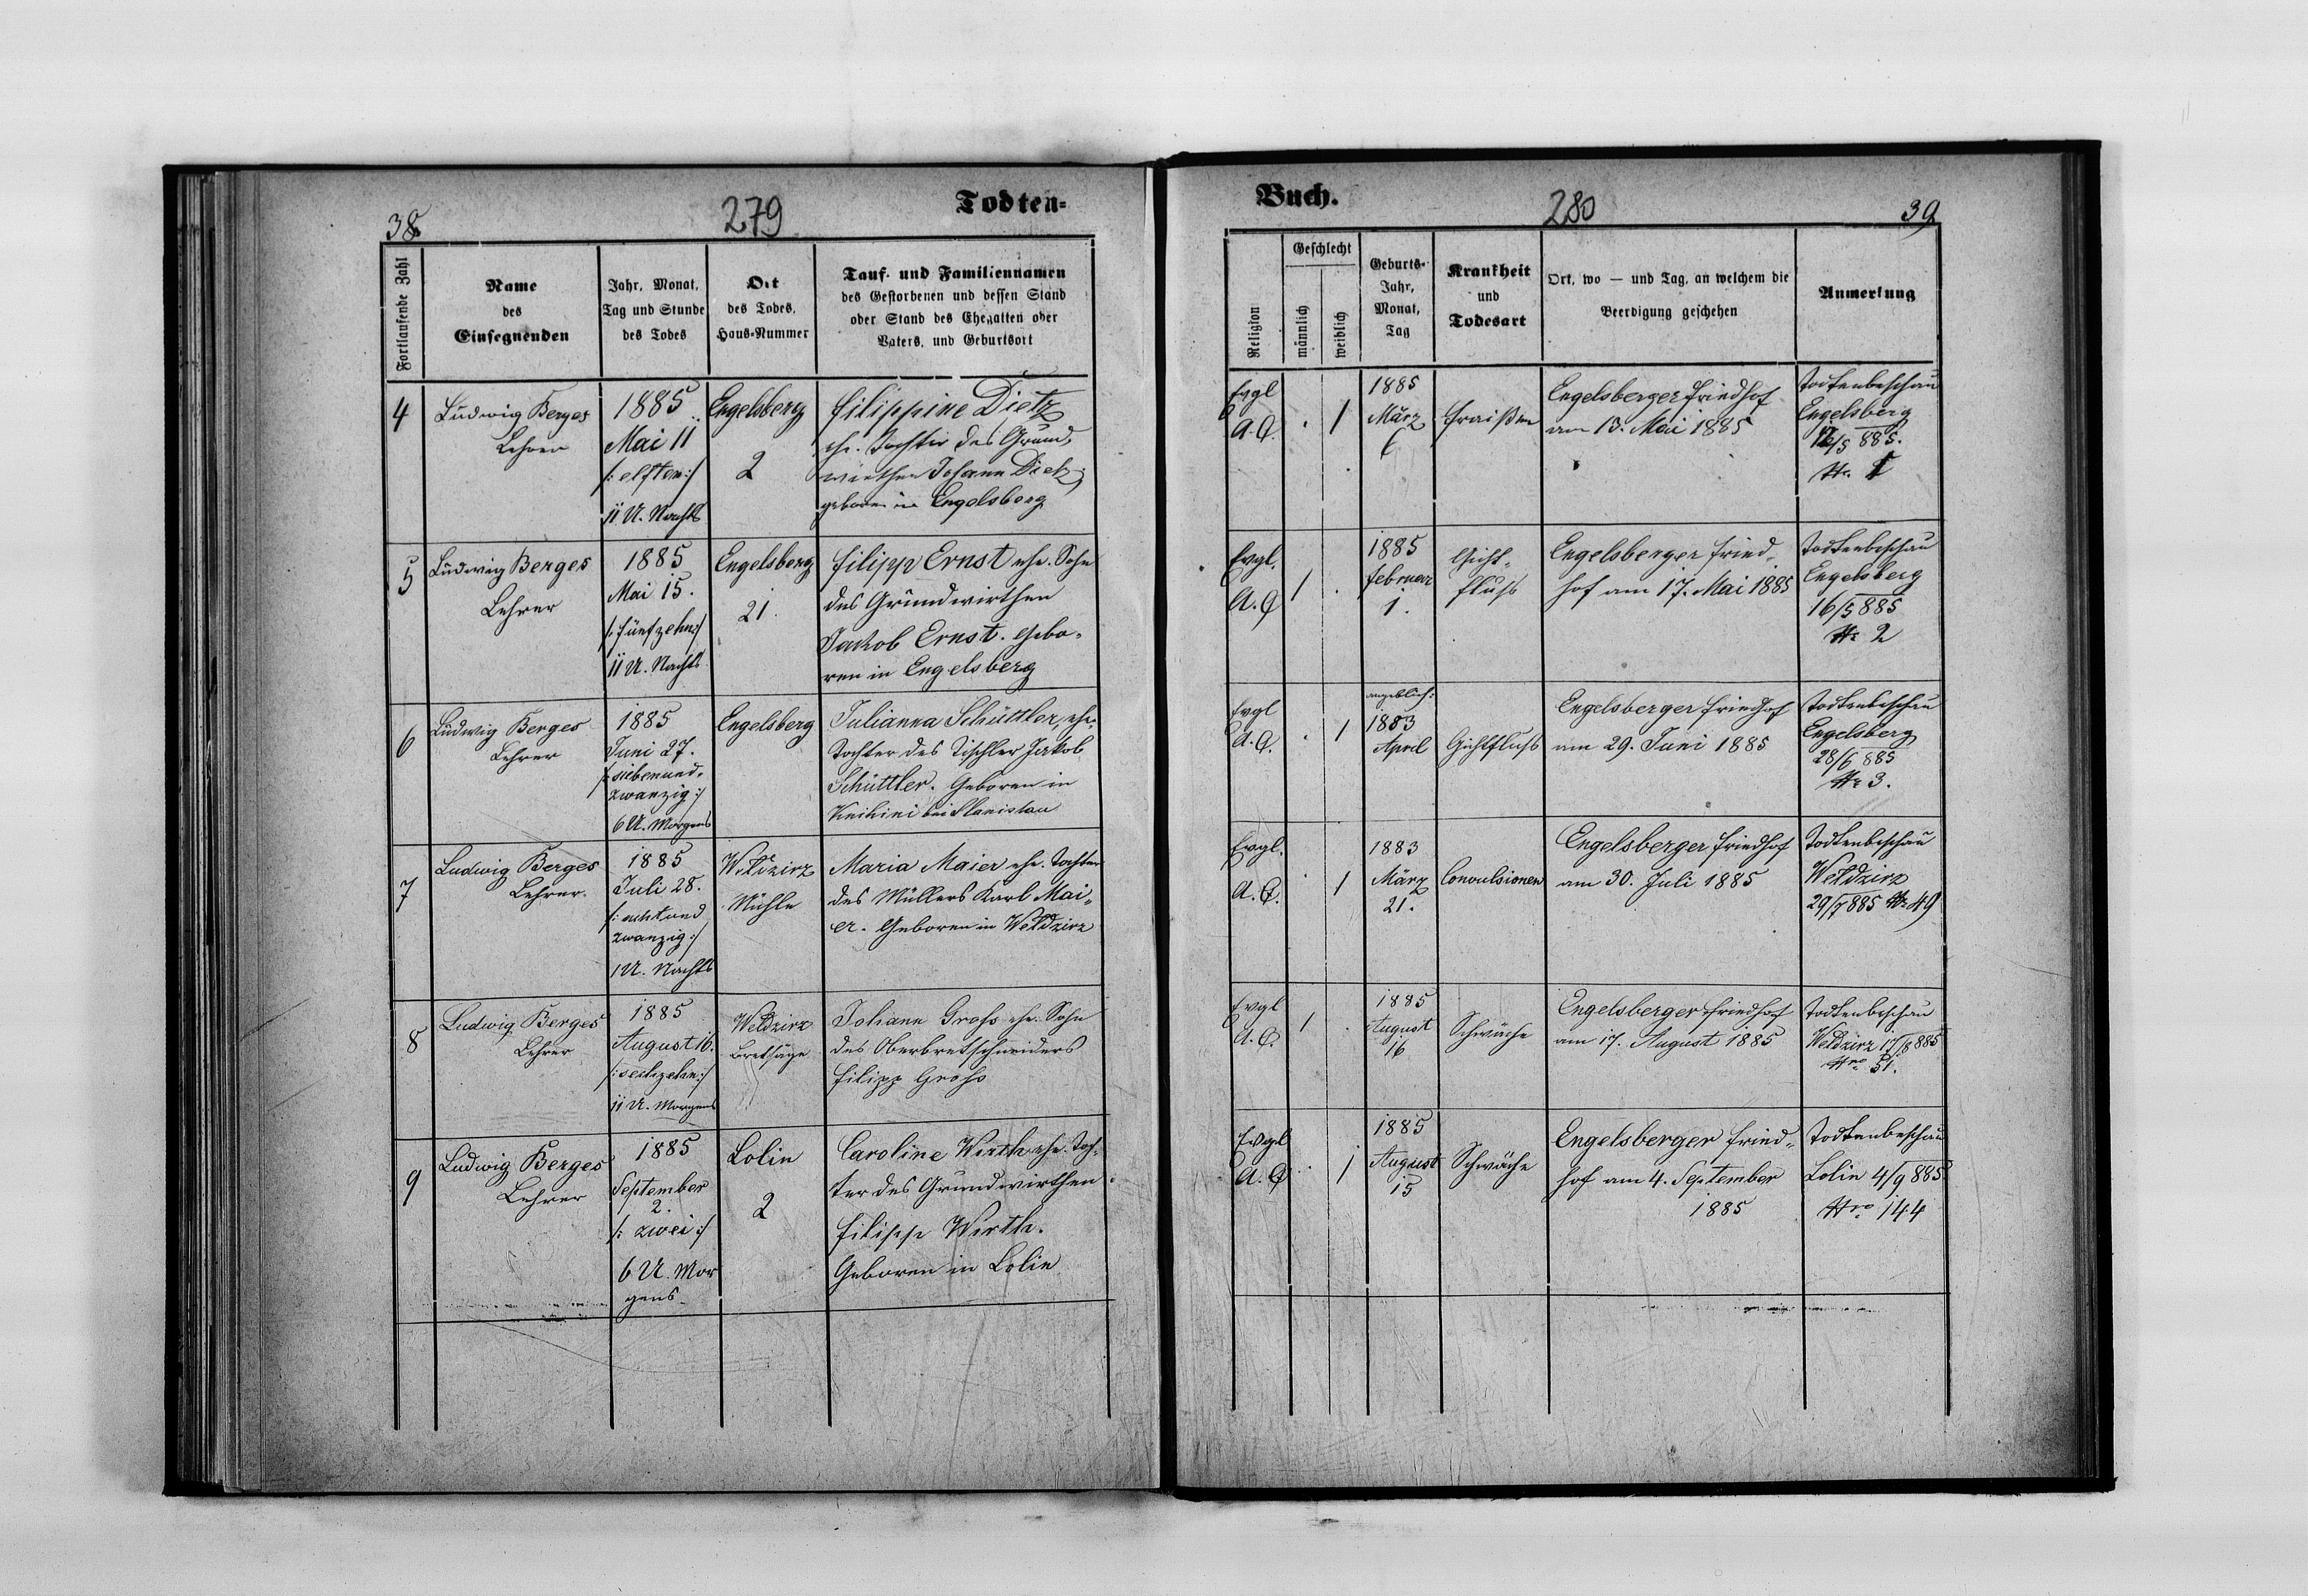 38
279
Todten-
Fortlaufende Zahl
Name
des
Einsegnenden
Jahr, Monat,
Tag und Stunde
des Todes
Ort
des Todes,
Haus-Nummer
Tauf- und Familiennamen
des Gestorbenen und dessen Stand
oder Stand des Ehegatten oder
Vaters, und Geburtsort
4
Ludwig Berges
Lehrer
1885
Mai 11
/: elften :/
11 U. Nachts
Engelsberg
2
Filippine Dietz
ehe. Tochter des Grund-
wirthen Johann Dietz,
geboren in Engelsberg
5
Ludwig Berges
Lehrer
1885
Mai 15.
/: fünfzehn :/
11 U. Nachts
Engelsberg
21.
Filipp Ernst ehe. Sohn
des Grundwirthen
Jakob Ernst. Gebo-
ren in Engelsberg
6
Ludwig Berges
Lehrer
1885
Juni 27.
/: siebenund-
zwanzig :/
6 U. Morgens
Engelsberg
Julianna Schüttler, ehe.
Tochter des Tischler Jakob
Schüttler. Geboren in
Knihini bei Stanislau
7
Ludwig Berges
Lehrer.
1885
Juli 28.
/: achtund
zwanzig :/
1 U. Nachts
Weldzirz
Mühle
Maria Maier ehe. Tochter
des Müllers Karl Mai-
er. Geboren in Weldzirz
8
Ludwig Berges
Lehrer
1885
August 16.
/: sechzehn :/
11 U. Morgens
Weldzirz
Bretsäge
Johann Groß ehe. Sohn
des Oberbretschneiders
Filipp Groß
9
Ludwig Berges
Lehrer
1885
September
2.
/: zwei :/
6 U. Mor
gens
Lolin
2
Caroline Wirth ehe. Toch-
ter des Grundwirthen
Filipp Wirth.
Geboren in Lolin
Buch.
280
39
Religion
Geschlecht
männlich
weiblich
Geburts-
Jahr,
Monat,
Tag
Krankheit
und
Todesart
Ort, wo — und Tag, an welchem die
Beerdigung geschehen
Anmerkung
Evgl
A. C.
. 1
1885
März
6
Fraißen
Engelsberger Friedhof
am 13. Mai 1885
Todtenbeschau
Engelsberg
12/5 885.
Nr. 1
Evgl.
A. C
1 .
1885
Februar
1.
Gicht-
fluß
Engelsberger Fried-
hof am 17. Mai 1885
Todtenbeschau
Engelsberg
16/5 885
Nr. 2
Evgl
A. C.
. 1
angeblich:
1883
April
Gichtfluß
Engelsberger Friedhof
am 29. Juni 1885
Todtenbeschau
Engelsberg
28/6 885
Nr. 3.
Evgl.
A. C.
. 1
1883
März
21.
Convulsionen
Engelsberger Friedhof
am 30. Juli 1885
Todtenbeschau
Weldzirz
29/7 885 Nr. 49
Evgl
A. C.
1 .
1885
August
16
Schwäche
Engelsberger Friedhof
am 17. August 1885
Todtenbeschau
Weldzirz 17/8 885
Nro 51.
Evgl
A. C
. 1
1885
August
15
Schwäche
Engelsberger Fried-
hof am 4. September
1885
Todtenbeschau
Lolin 4/9 885
Nro 144